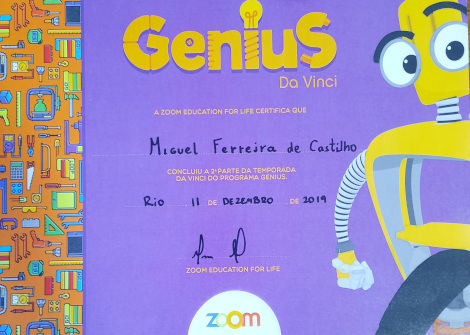 Genius
Da Vinci
A ZOOM EDUCATION FOR LIFE CERTIFICA QUE
Miguel Ferreira de Castilho
CONCLUIU A 2ª PARTE DA TEMPORADA
DA VINCI DO PROGRAMA GENIUS.
Rio 11 DE DEZEMBRO DE 2019
ZOOM EDUCATION FOR LIFE
zoom